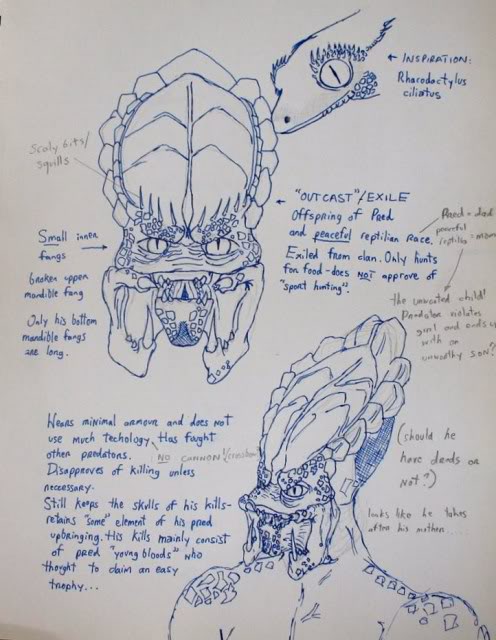 ← INSPIRATION:
Rhacodactylus
ciliatus
Scaly bits/
squills
← "OUTCAST"/EXILE
Offspring of Pred
and peaceful reptilian Race.
Exiled from clan. Only hunts
for food - does NOT approve of
"sport hunting".
Pred = dad
peaceful
reptilian = mom
the unwanted child!
Predator violates
girl and ends up
with an
unworthy son?
Small inner →
fangs
broken upper
mandible fang
Only his bottom
mandible fangs
are long.
Wears minimal armour and does not
use much techology. Has fought
other predators. NO CANNON!
Disapproves of killing unless
neccessary.
Still keeps the skulls of his kills -
retains "some" element of his pred
upbringing. His kills mainly consist
of pred "young bloods" who
thought to claim an easy
trophy...
(should he
have dreads or
not?)
looks like he takes
after his mother...